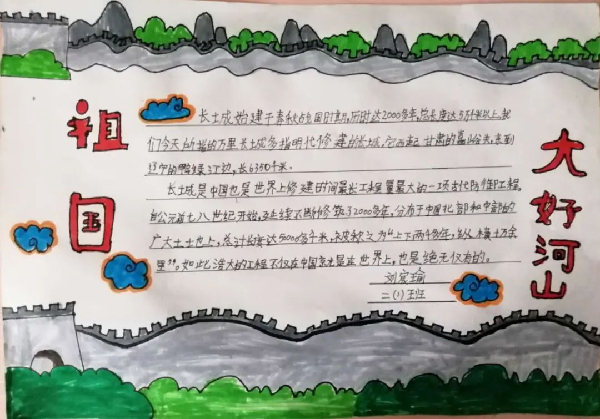 祖国
大好河山
长土成始建于春秋占国时期,历时达2000多年,总长度达5万千米以上。我
们今天所指的万里长土成多指明代修建的长城,它西起甘肃的嘉山谷关,东到
辽宁的鸭绿江边,长6350千米。
长土成是中国也是世界上修建时间最长工程量最大的一项古代防御工程。
自公元前七八世纪开始,延续不断修筑了2000多年,分布于中国北部和中部的
广大土土也上,总计长度达5000多千米,被称之为“上下两千多年,纵横十万余
里”。如此浩大的工程不仅在中国就是在世界上,也是绝无仅有的。
刘安瑜
二(1)班